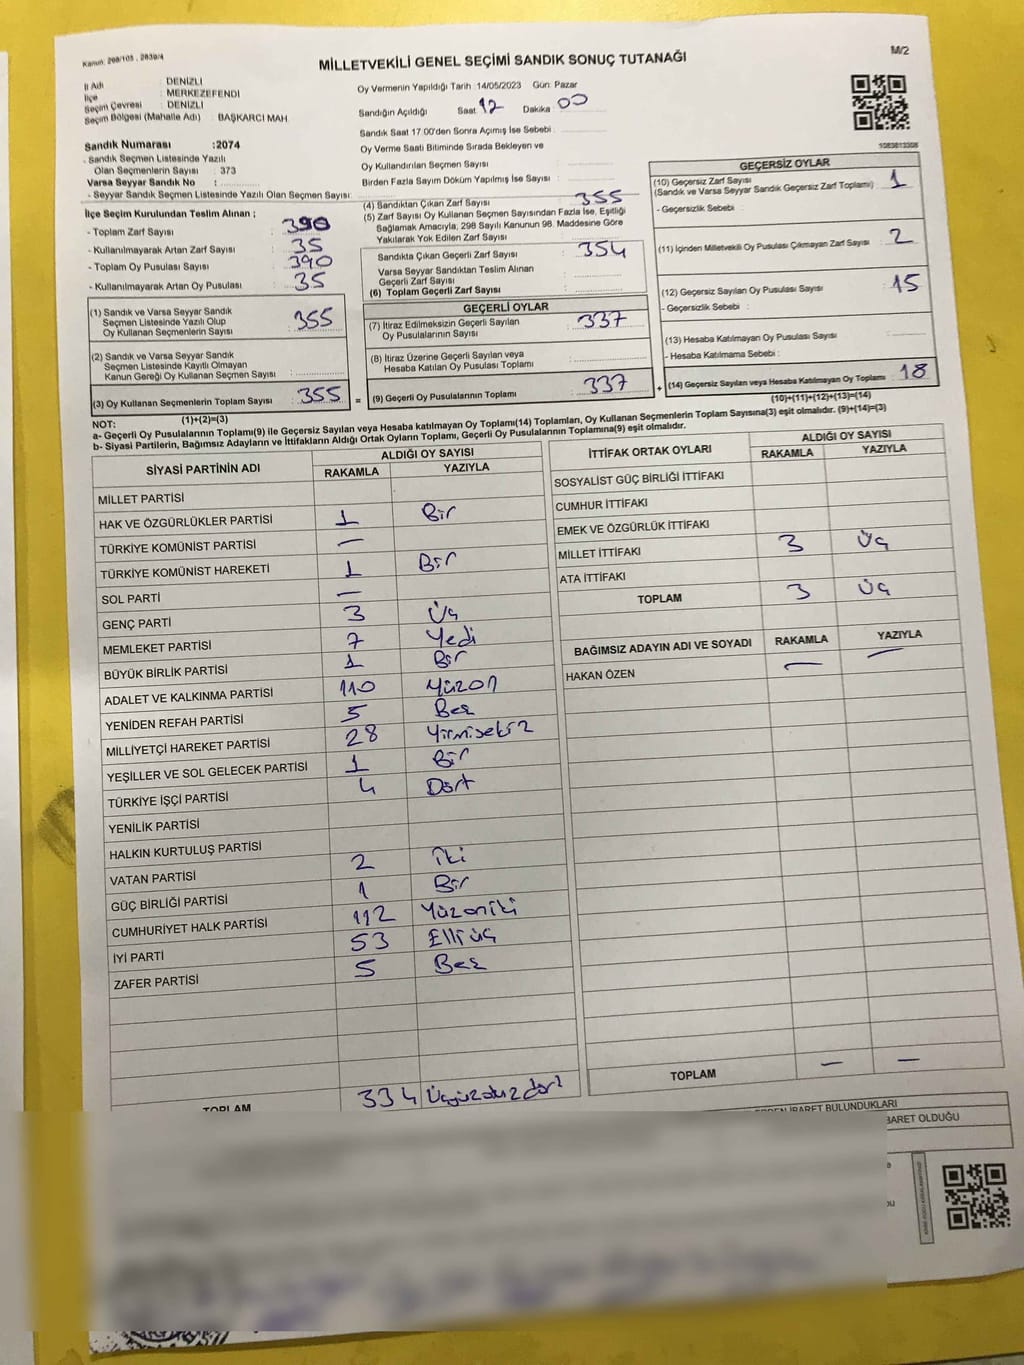 Kanun: 298/105 , 2839/4
MİLLETVEKİLİ GENEL SEÇİMİ SANDIK SONUÇ TUTANAĞI
M/2
İl Adı : DENİZLİ
İlçe : MERKEZEFENDİ
Seçim Çevresi : DENİZLİ
Seçim Bölgesi (Mahalle Adı) : BAŞKARCI MAH.
Sandık Numarası :2074
- Sandık Seçmen Listesinde Yazılı
Olan Seçmenlerin Sayısı : 373
Varsa Seyyar Sandık No :
- Seyyar Sandık Seçmen Listesinde Yazılı Olan Seçmen Sayısı:
İlçe Seçim Kurulundan Teslim Alınan ;
- Toplam Zarf Sayısı : 390
- Kullanılmayarak Artan Zarf Sayısı : 35
- Toplam Oy Pusulası Sayısı : 390
- Kullanılmayarak Artan Oy Pusulası : 35
(1) Sandık ve Varsa Seyyar Sandık
Seçmen Listesinde Yazılı Olup
Oy Kullanan Seçmenlerin Sayısı : 355
(2) Sandık ve Varsa Seyyar Sandık
Seçmen Listesinde Kayıtlı Olmayan
Kanun Gereği Oy Kullanan Seçmen Sayısı :
(3) Oy Kullanan Seçmenlerin Toplam Sayısı : 355
(1)+(2)=(3)
Oy Vermenin Yapıldığı Tarih :14/05/2023 Gün: Pazar
Sandığın Açıldığı Saat 12 Dakika 00
Sandık Saat 17.00'den Sonra Açımış İse Sebebi :
Oy Verme Saati Bitiminde Sırada Bekleyen ve
Oy Kullandırılan Seçmen Sayısı :
Birden Fazla Sayım Döküm Yapılmış İse Sayısı :
(4) Sandıktan Çıkan Zarf Sayısı : 355
(5) Zarf Sayısı Oy Kullanan Seçmen Sayısından Fazla İse, Eşitliği
Sağlamak Amacıyla; 298 Sayılı Kanunun 98. Maddesine Göre
Yakılarak Yok Edilen Zarf Sayısı :
Sandıkta Çıkan Geçerli Zarf Sayısı : 354
Varsa Seyyar Sandıktan Teslim Alınan
Geçerli Zarf Sayısı :
(6) Toplam Geçerli Zarf Sayısı :
GEÇERLİ OYLAR
(7) İtiraz Edilmeksizin Geçerli Sayılan
Oy Pusulalarının Sayısı : 337
(8) İtiraz Üzerine Geçerli Sayılan veya
Hesaba Katılan Oy Pusulası Toplamı :
= (9) Geçerli Oy Pusulalarının Toplamı : 337
1083813308
GEÇERSİZ OYLAR
(10) Geçersiz Zarf Sayısı
(Sandık ve Varsa Seyyar Sandık Geçersiz Zarf Toplamı) : 1
- Geçersizlik Sebebi :
(11) İçinden Milletvekili Oy Pusulası Çıkmayan Zarf Sayısı : 2
(12) Geçersiz Sayılan Oy Pusulası Sayısı : 15
- Geçersizlik Sebebi :
(13) Hesaba Katılmayan Oy Pusulası Sayısı :
- Hesaba Katılmama Sebebi :
+ (14) Geçersiz Sayılan veya Hesaba Katılmayan Oy Toplamı : 18
(10)+(11)+(12)+(13)=(14)
NOT:
a- Geçerli Oy Pusulalarının Toplamı(9) ile Geçersiz Sayılan veya Hesaba katılmayan Oy Toplamı(14) Toplamları, Oy Kullanan Seçmenlerin Toplam Sayısına(3) eşit olmalıdır. (9)+(14)=(3)
b- Siyasi Partilerin, Bağımsız Adayların ve İttifakların Aldığı Ortak Oyların Toplamı, Geçerli Oy Pusulalarının Toplamına(9) eşit olmalıdır.
SİYASİ PARTİNİN ADI ALDIĞI OY SAYISI
RAKAMLA YAZIYLA
MİLLET PARTİSİ
HAK VE ÖZGÜRLÜKLER PARTİSİ 1 Bir
TÜRKİYE KOMÜNİST PARTİSİ —
TÜRKİYE KOMÜNİST HAREKETİ 1 Bir
SOL PARTİ —
GENÇ PARTİ 3 Üç
MEMLEKET PARTİSİ 7 Yedi
BÜYÜK BİRLİK PARTİSİ 1 Bir
ADALET VE KALKINMA PARTİSİ 110 Yüzon
YENİDEN REFAH PARTİSİ 5 Beş
MİLLİYETÇİ HAREKET PARTİSİ 28 Yirmisekiz
YEŞİLLER VE SOL GELECEK PARTİSİ 1 Bir
TÜRKİYE İŞÇİ PARTİSİ 4 Dört
YENİLİK PARTİSİ
HALKIN KURTULUŞ PARTİSİ
VATAN PARTİSİ 2 İki
GÜÇ BİRLİĞİ PARTİSİ 1 Bir
CUMHURİYET HALK PARTİSİ 112 Yüzoniki
İYİ PARTİ 53 Elliüç
ZAFER PARTİSİ 5 Beş
TOPLAM 334 Üçyüzotuzdört
İTTİFAK ORTAK OYLARI ALDIĞI OY SAYISI
RAKAMLA YAZIYLA
SOSYALİST GÜÇ BİRLİĞİ İTTİFAKI
CUMHUR İTTİFAKI
EMEK VE ÖZGÜRLÜK İTTİFAKI
MİLLET İTTİFAKI 3 Üç
ATA İTTİFAKI
TOPLAM 3 Üç
BAĞIMSIZ ADAYIN ADI VE SOYADI RAKAMLA YAZIYLA
HAKAN ÖZEN — —
TOPLAM — —
İBARET BULUNDUKLARI
İBARET OLDUĞU